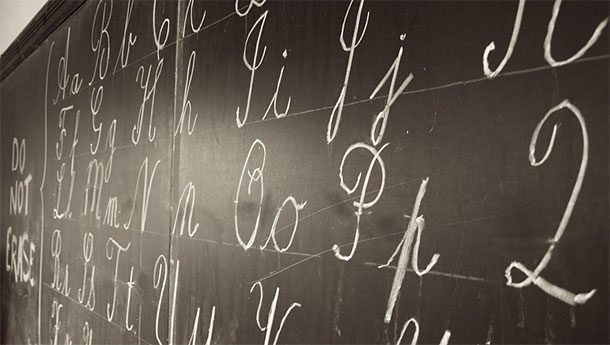 DO
NOT
ERASE
Aa Bb
Ff Gg Hh Ii Jj
Ll Mm Nn Oo Pp Q
Rr Ss Tt U